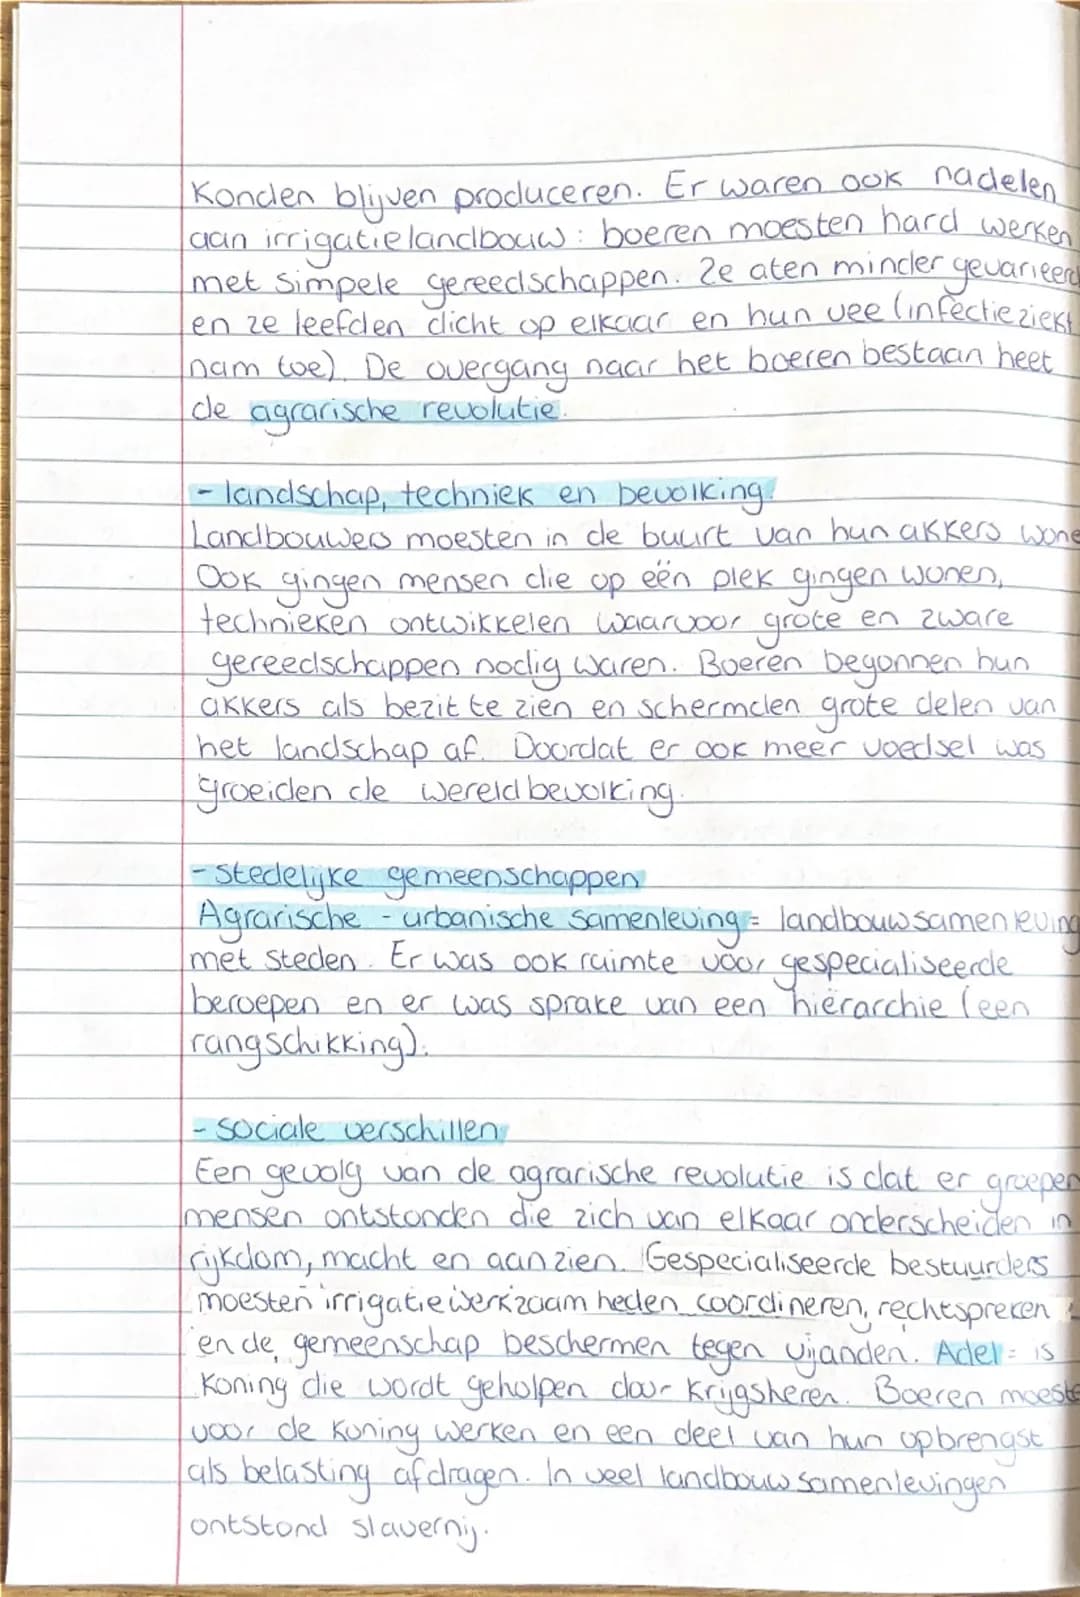 Konden blijven produceren. Er waren ook nadelen
aan irrigatielandbouw: boeren moesten hard werken
met simpele gereedschappen. Ze aten minder gevarieerd
en ze leefden dicht op elkaar en hun vee (infectieziekt
nam toe). De overgang naar het boeren bestaan heet
de agrarische revolutie.
- landschap, techniek en bevolking.
Landbouwers moesten in de buurt van hun akkers wone
Ook gingen mensen die op één plek gingen wonen,
technieken ontwikkelen waarvoor grote en zware
gereedschappen nodig waren. Boeren begonnen hun
akkers als bezit te zien en schermden grote delen van
het landschap af. Doordat er ook meer voedsel was
groeiden de wereldbevolking.
- stedelijke gemeenschappen
Agrarische - urbanische samenleving = landbouwsamenleving
met steden. Er was ook ruimte voor gespecialiseerde
beroepen en er was sprake van een hiërarchie (een
rangschikking).
- sociale verschillen
Een gevolg van de agrarische revolutie is dat er groepen
mensen ontstonden die zich van elkaar onderscheiden in
rijkdom, macht en aanzien. Gespecialiseerde bestuurders
moesten irrigatiewerkzaamheden coordineren, rechtspreken
en de gemeenschap beschermen tegen vijanden. Adel = is
Koning die wordt geholpen door Krijgsheren. Boeren moeste
voor de Koning werken en een deel van hun opbrengst
als belasting afdragen. In veel landbouwsamenlevingen
ontstond slavernij.